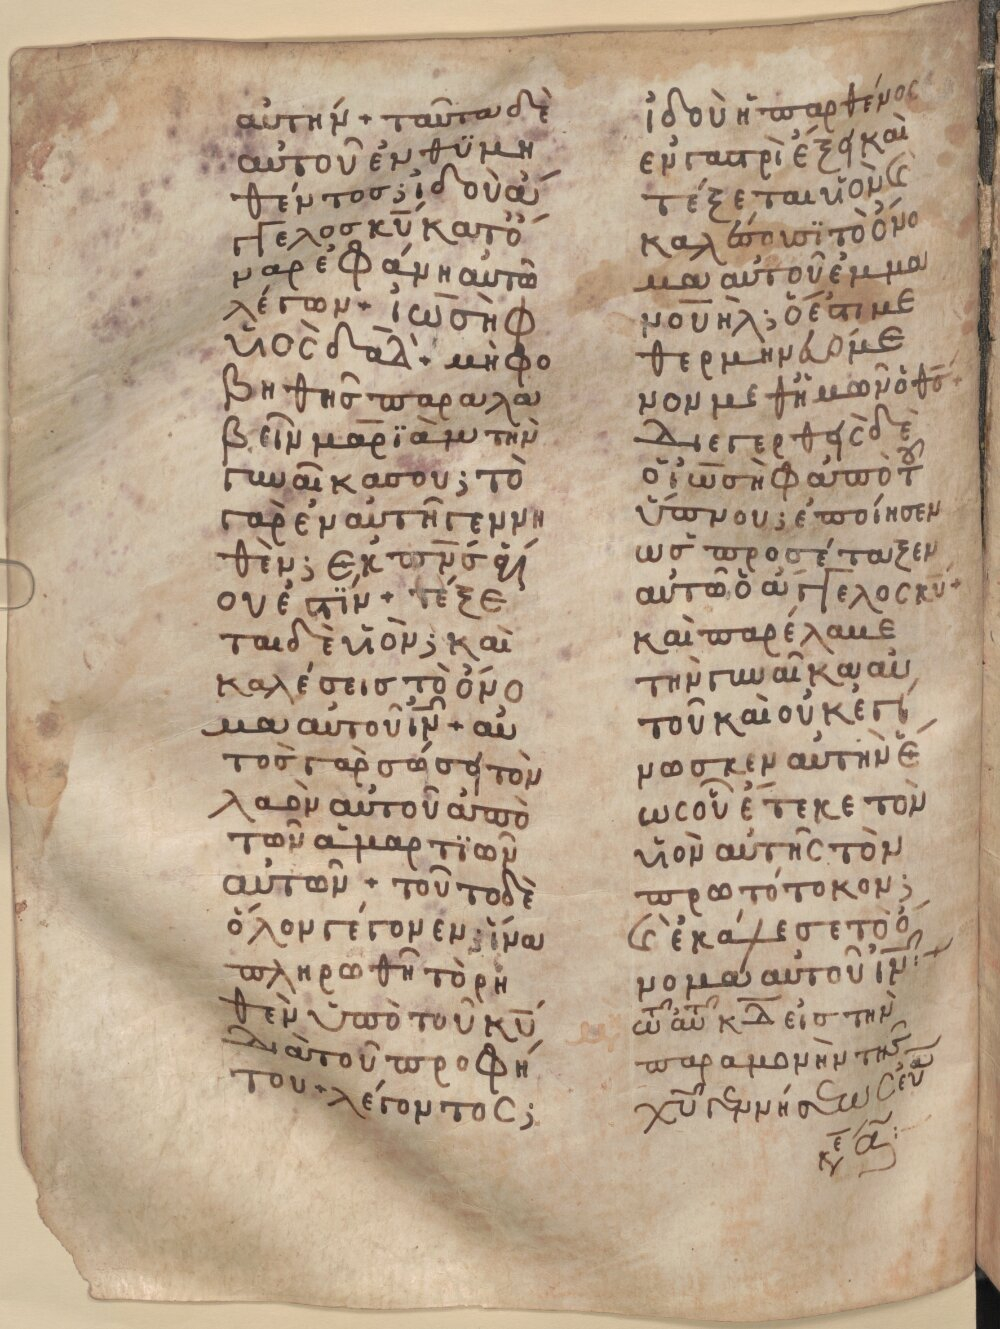 αὐτήν + ταῦτα δὲ
αὐτοῦ ἐνθϋμη
θέντος; ἰδοὺ ἄγ
γελος κ̅υ̅ κατ' ὄ
ναρ ἐφάνη αὐτῶ
λέγων + ἰωσὴφ
υἱὸς δ̅α̅δ̅ + μὴ φο
βηθῆς παραλα
βεῖν μαρϊὰμ τὴν
γυναῖκα σου; τὸ
γὰρ ἐν αὐτῆ γεννη
θὲν; ἐκ π̅ν̅ς ἁγί
ου ἐστϊν + τέξε
ται δὲ υἱὸν; καὶ
καλέσεις τὸ ὄνο
μα αὐτοῦ ι̅ν̅ + αὐ
τὸς γὰρ σώσει τὸν
λαὸν αὐτοῦ ἀπὸ
τῶν ἁμαρτϊῶν
αὐτῶν + τοῦτο δὲ
ὅλον γέγονεν; ἵνα
πληρωθῆ τὸ ῥη
θὲν ὑπὸ τοῦ κ̅υ̅
διὰ τοῦ προφή
του + λέγοντος;
ἰδοὺ ἡ παρθένος
ἐν γαστρὶ ἕξει καὶ
τέξεται υἱὸν ϗ
καλέσουσϊ τὸ ὄνο
μα αὐτοῦ ἐμμα
νουὴλ; ὅ ἐστι με
θερμηνευόμε
νον μεθ' ἡμῶν ὁ θ̅ς̅ +
Διεγερθεὶς δὲ
ὁ ἰωσὴφ ἀπὸ τοῦ
ὕπνου; ἐποίησεν
ως προσέταξεν
αὐτῶ ὁ ἄγγελος κ̅υ̅ +
καὶ παρέλαβε
τὴν γυναῖκα αὐ
τοῦ καὶ οὐκ ἐγί
νωσκεν αὐτὴν ἕ
ως οὗ ἔτεκε τὸν
υἱὸν αὐτῆς τὸν
πρωτότοκον;
ϗ ἐκάλεσε τὸ ὄ
νομα αὐτοῦ ι̅ν̅ +
εἰς τὴν
παραμονὴν τῆς
χ̅υ̅ γεννήσεως